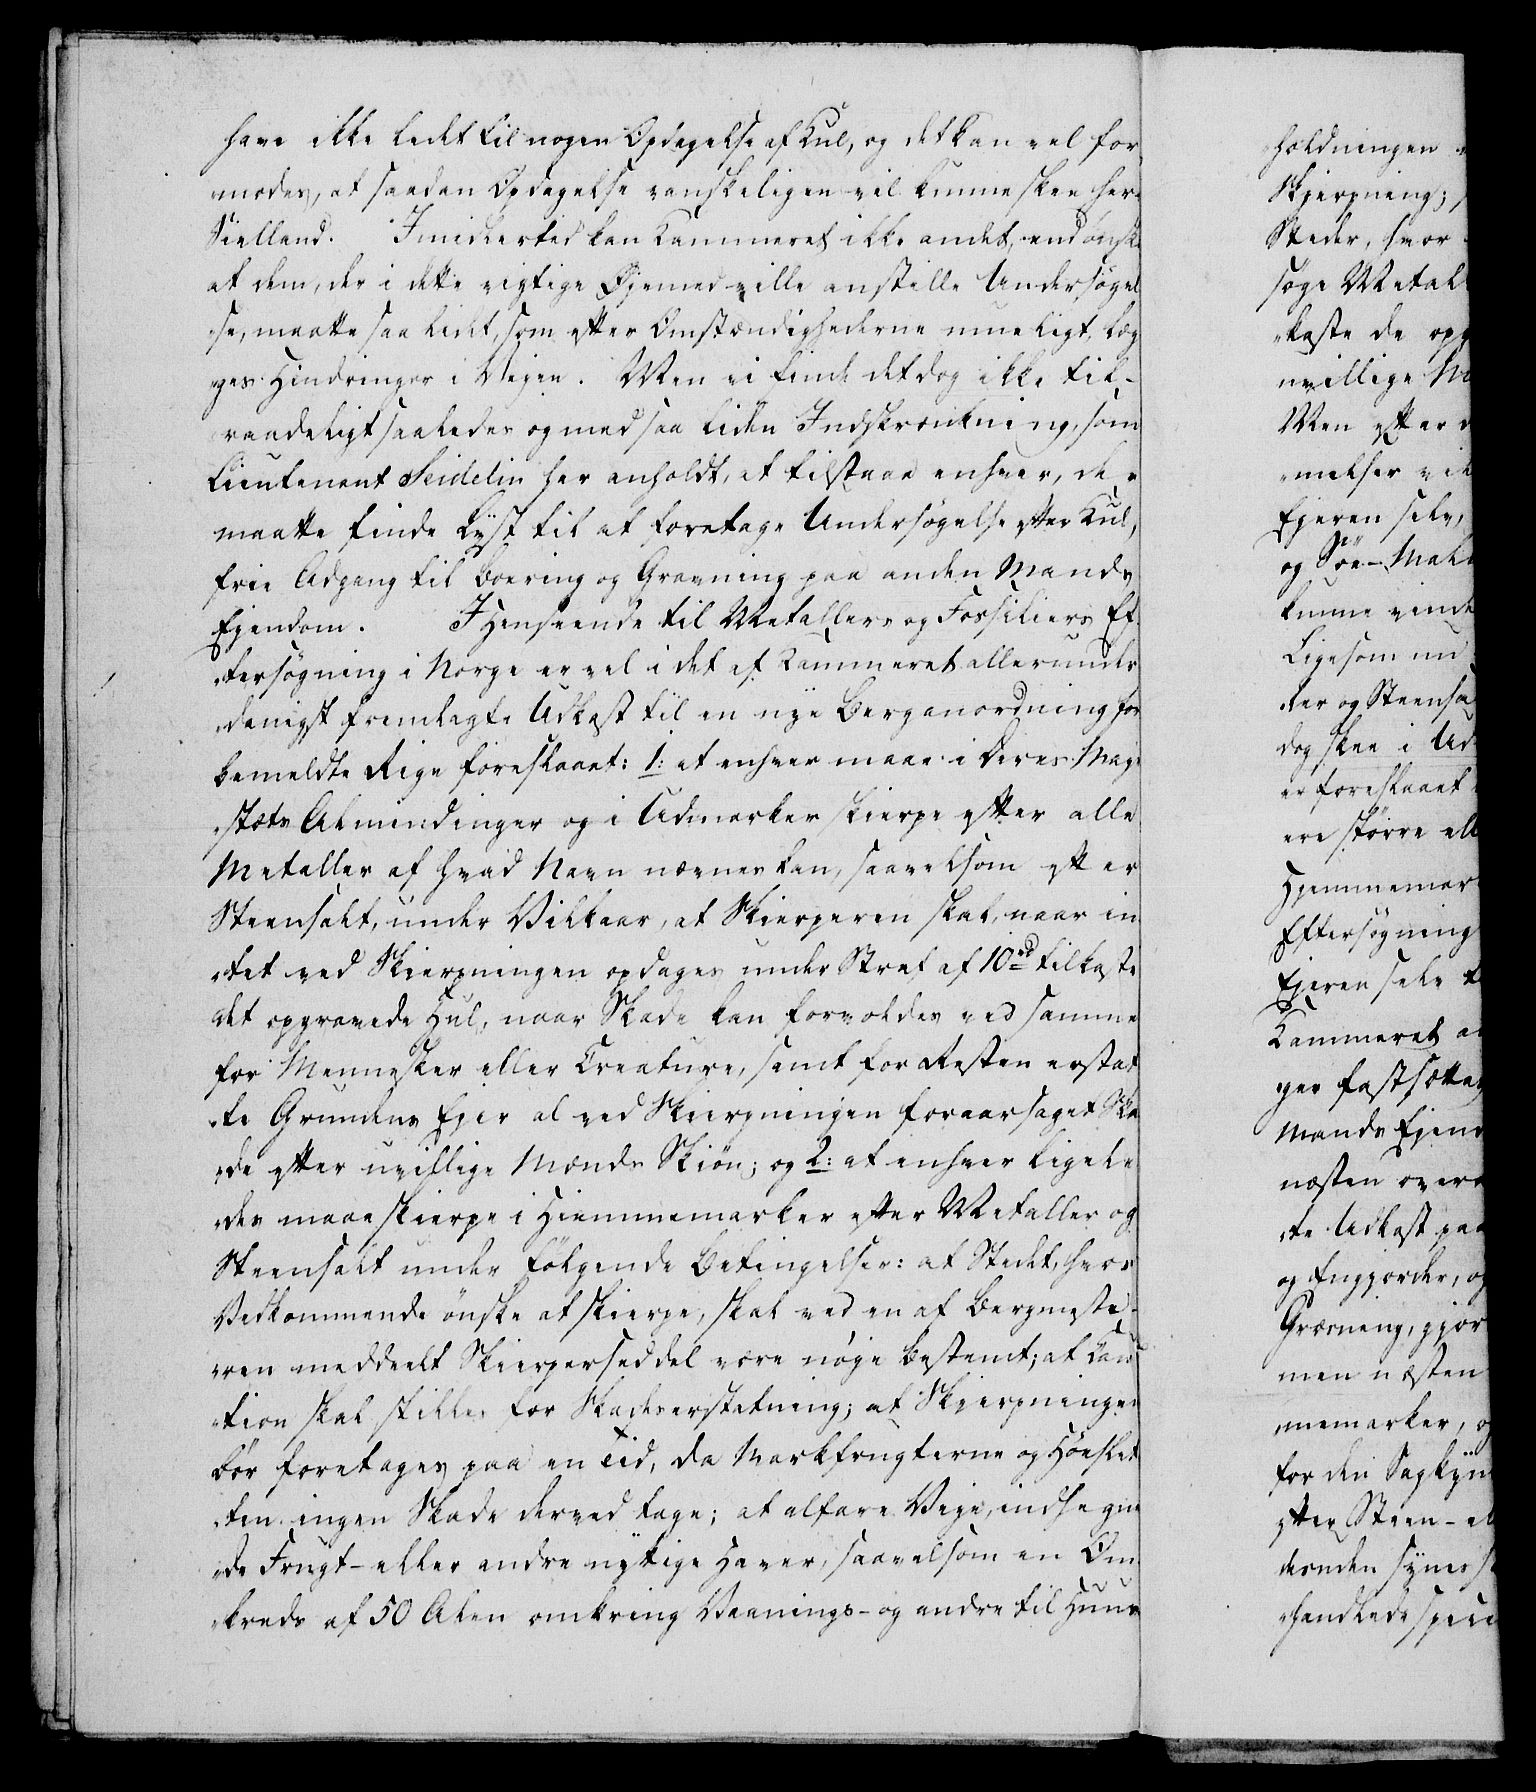 have ikke ledet til nogen Opdagelse af Kul, og det kan vel for-
modes, at saadan Opdagelse vanskeligen vil kunne skee her i
Sielland. Imidlertid kan Kammeret ikke andet, end ønske
at dem, der i dette vigtige Øjemed ville anstille Undersøgel-
se, maatte saa lidet, som efter Omstændighederne mueligt, læg-
ges Hindringer i Vejen. Men vi finde det dog ikke til-
raadeligt saaledes og med saa liden Indskrænkning, som
Lieutenant Seidelin har anholdt, at tilstaae enhver, der
maatte finde Lyst til at foretage Undersøgelse efter Kul,
frie Adgang til Boering og Gravning paa anden Mands
Ejendom. I Henseende til Metallers og Fossiliers Ef-
tersøgning i Norge er vel i det af Kammeret allerunder-
danigst fremlagte Udkast til en nye Berganordning for
bemeldte Rige foreslaaet: 1: at enhver maae i Deres Maj-
stæts Almindinger og i Udmarker skierpe efter alle
Metaller af hvad Navn nævnes kan, saavelsom efter
Steensalt, under Vilkaar, at Skierperen skal, naar in-
tet ved Skierpningen opdages under Straf af 10 rd tilkaste
det opgravede Hul, naar Skade kan forvoldes ved samme
for Mennesker eller Creature, samt for Resten erstat-
te Grundens Ejer al ved Skierpningen foraarsaget Ska-
de efter uvillige Mænds Skiøn; og 2: at enhver ligele-
des maae skierpe i Hiemmemarker efter Metaller og
Steensalt under følgende Betingelser: at Stedet, hvor
Vedkommende ønske at skierpe, skal ved en af Bergmeste-
ren meddeelt Skierperseddel være nøje bestemt; at Cau-
tion skal stilles for Skadeserstatning; at Skjerpningen
bør foretages paa en Tid, da Markfrugterne og Høeslet-
ten ingen Skade derved tage; at alfare Veje, indhegne-
de Frugt- eller andre nyttige Haver, saavelsom en Om-
kreds af 50 Alen omkring Vaanings- og andre til Huus-
holdningen
Skjerpning;
Steder, hvor
søge Metal
kaste de opg
uvillige M
Men efter d
melser vil
Ejeren selv,
og Søe-Mal
kunne vinde
Ligesom nu
ler og Steensa
dog skee i Ud
er foreslaaet
ere større ell
Hjemmemar
Eftersøgning
Ejeren selv
Kammeret a
ger fastsætte
Mands Ejend
næsten over
te Udkast paa
og Enggjorder, og
Græsning, gjør
men næsten
memarker, og
for den Sagkyn
efter Steen- el
desuden synes
handlede speci